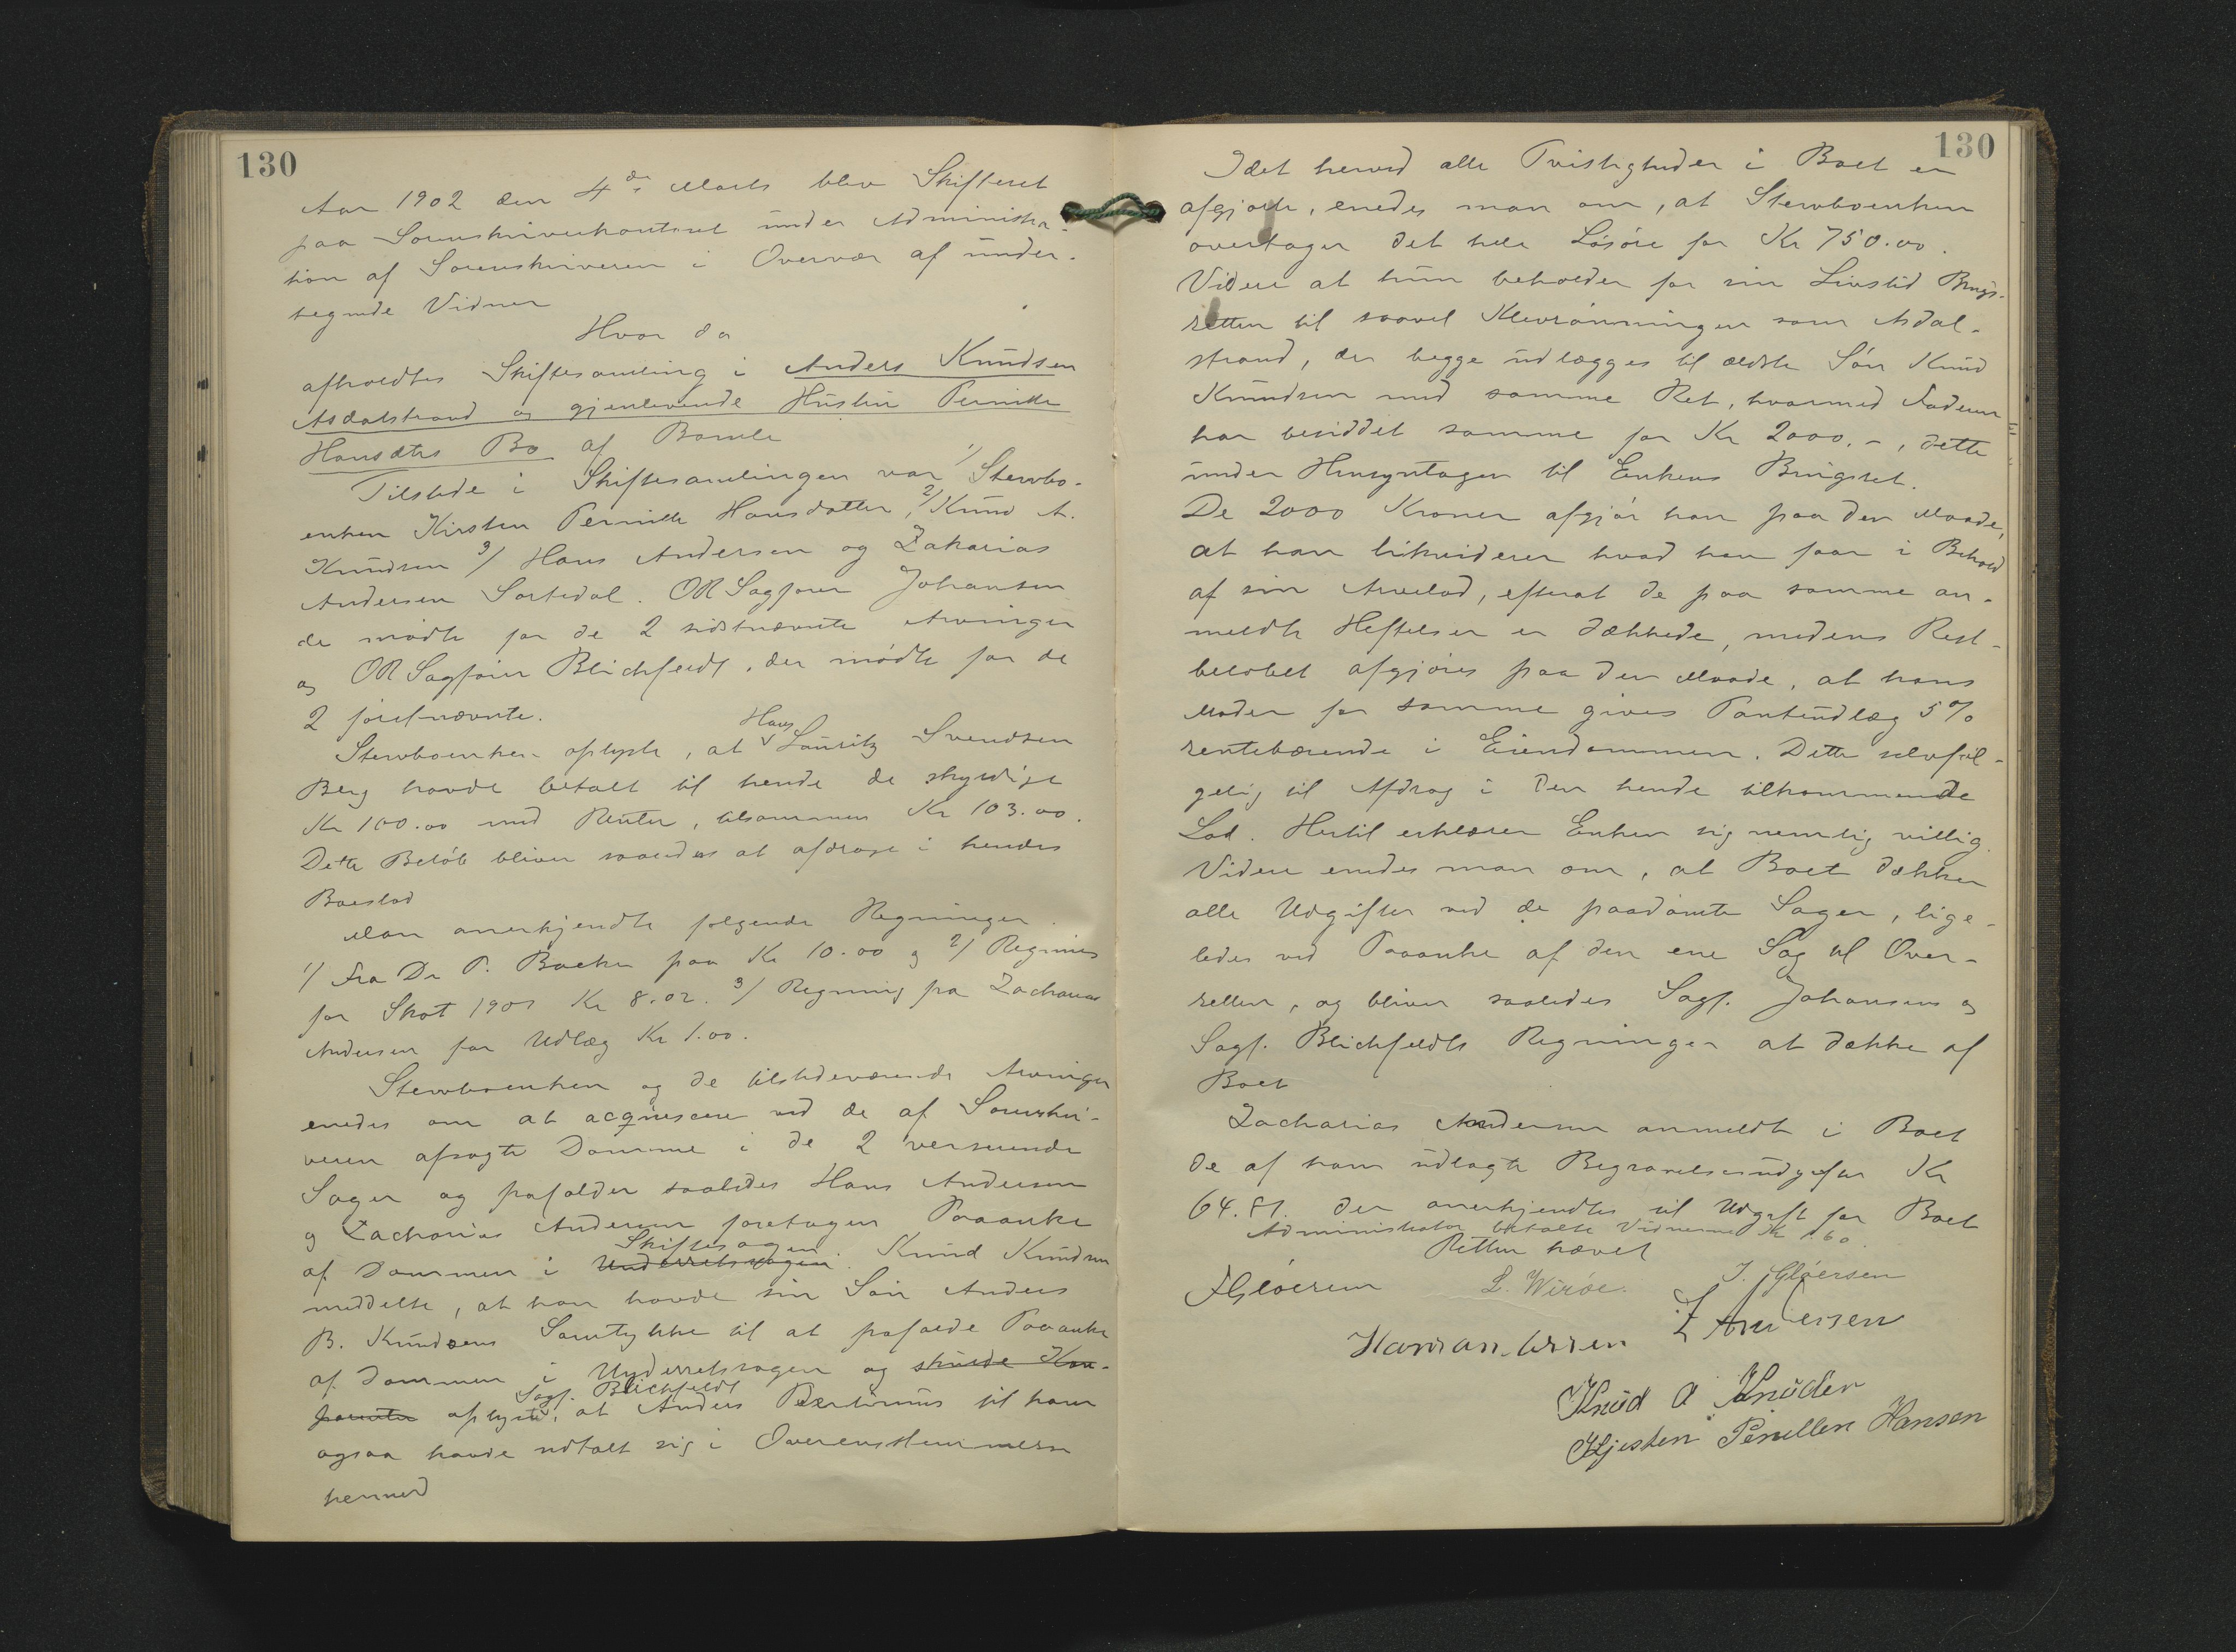 130
Aar 1902 den 4de Marts blev Skifteret
paa Sorenskriverkontoret under Administra-
tion af Sorenskriveren i Overvær af under-
tegnede Vidner
Hvor da
afholdtes Skiftesamling i Anders Knudsen
Asdalstrand og gjenlevende Hustru Pernille
Hansdtrs Bo af Bamle
Tilstede i Skiftesamlingen var 1/ Stervbo-
enken Kirsten Pernille Hansdatter, 2/ Knud A.
Knudsen 3/ Hans Andersen og Zakarias
Andersen Sortedal. OR Sagfører Johansen
de mødte for de 2 sidstnævnte Arvinger
og OR Sagfører Blichfeldt, der mødte for de
2 førstnævnte.
Stervboenken oplyste, at Hans Lauritz Svendsen
Berg havde betalt til hende de skyldige
Kr 100.00 med Renter, tilsammen Kr 103.00.
Dette Beløb bliver saaledes at afdrage i hendes
Boeslod
Man anerkjendte følgende Regninger.
1/ Fra Dr P. Backer paa Kr 10.00 og 2/ Regning
for Skat 1901 Kr 8.02. 3/ Regning fra Zacharias
Andersen for Udlæg Kr 1.00.
Stervboenken og de tilstedeværende Arvinger
enedes om at acqviescere ved de af Sorenskri-
veren afsagte Domme i de 2 verserende
Sager og frafalder saaledes Hans Andersen
og Zacharias Andersen foretagen Paaanke
af Dommen i Underretssagen Skiftesagen. Knud Knudsen
meddelte, at han havde sin Søn Anders
B. Knudsens Samtykke til at frafalde Paaanke
af Dommen i Underretssagen og skulde Kom-
parenten oplyste Sagf. Blichfeldt, at Anders til ham
ogsaa havde udtalt sig i Overensstemmelse
hermed
130
Idet herved alle Tvistigheder i Boet er
afgjorte, enedes man om, at Stervboenken
overtager det hele Løsøre for Kr 750.00.
Videre at hun beholder for sin Livstid Brugs-
retten til saavel Klevrønningen som Asdal-
strand, der begge udlægges til ældste Søn Knud
Knudsen med samme Ret, hvormed Faderen
har besiddet samme for Kr 2000.-, dette
under Hensyntagen til Enkens Brugsret.
De 2000 Kroner afgjør han paa den Maade,
at han likviderer hvad han faar i Behold
af sin Arvelod, efterat de paa samme an-
meldte Heftelser er dækkede, medens Rest-
beløbet afgjøres paa den Maade, at hans
Moder for samme gives Pantudlæg 5%
rentebærende i Eiendommen. Dette selvføl-
gelig til Afdrag i den hende tilkommende
Lod. Hertil erklærer Enken sig nemlig villig.
Videre enedes man om, at Boet dækker
alle Udgifter ved de paadømte Sager, lige-
ledes ved Paaanke af den ene Sag til Over-
retten, og bliver saaledes Sagf. Johansens og
Sagf. Blichfeldts Regninger at dække af
Boet
Zacharias Andersen anmeldte i Boet
de af ham udlagte Begravelsesudgifter Kr
64.81. der anerkjendtes til Udgift for Boet
Administrator betalte Vidnerne Kr 1.60.
Retten hævet
FGløersen L. Wirøe. J. Gløersen
Hansandersen Z Andersen
Knud A Knudsen
Kjesten Pernillen Hansen